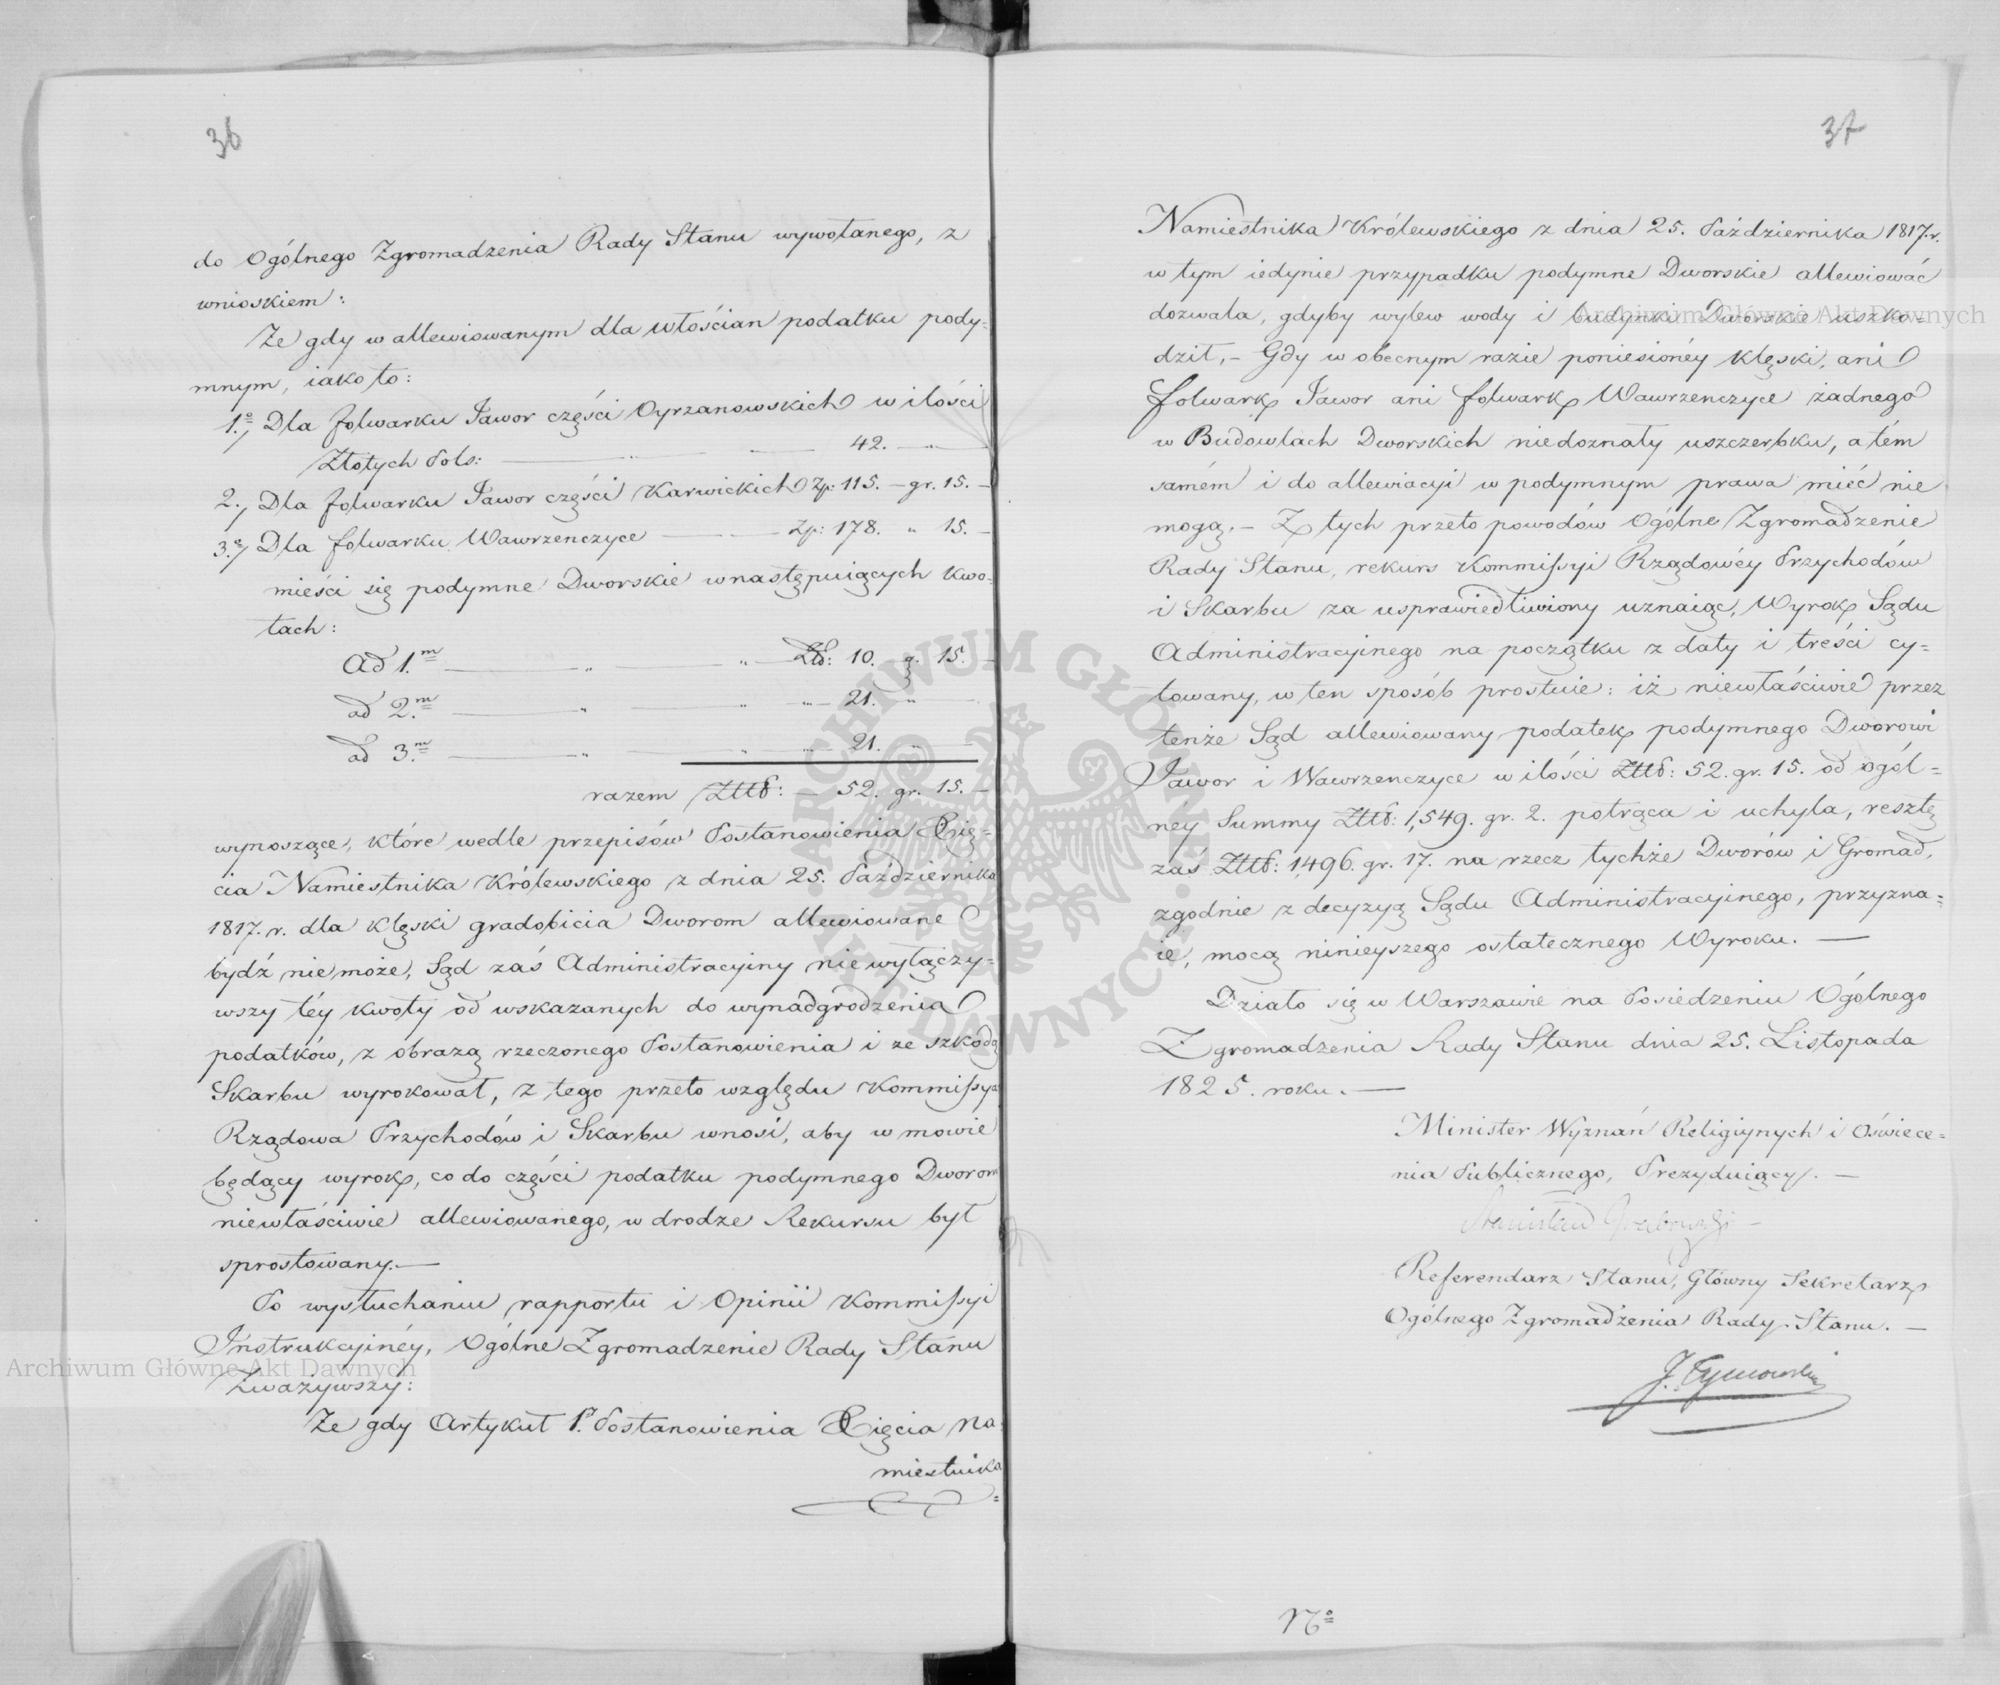 36
do Ogólnego Zgromadzenia Rady Stanu wywołanego, z
wnioskiem:
Że gdy w allewiowanym dla włościan podatku pody-
mnym, iako to:
1.º Dla folwarku Jawor części Oyrzanowskich w ilości
Złotych Pols: — " — 42. — " —
2., Dla folwarku Jawor części Karwickich Zp: 115. — gr. 15. —
3.º, Dla folwarku Wawrzenczyce — Zp: 178. " 15. —
mieści się podymne Dworskie w następuiących kwo-
tach:
Ad 1.m — " — " — Złb: 10. g. 15. —
ad 2.m — " — " — " — 21. " —
ad 3.m — " — " — " — 21. " —
razem Złłb: — 52. gr. 15. —
wynoszące, które wedle przepisów Postanowienia Xię-
cia Namiestnika Królewskiego z dnia 25. Października
1817. r. dla klęski gradobicia Dworom allewiowane
bydź nie może, Sąd zaś Administracyiny nie wyłączy-
wszy téy kwoty od wskazanych do wynadgrodzenia
podatków, z obrazą rzeczonego Postanowienia i ze szkodą
Skarbu wyrokował, z tego przeto względu Kommissya
Rządowa Przychodów i Skarbu wnosi, aby w mowie
będący wyrok, co do części podatku podymnego Dworom
niewłaściwie allewiowanego, w drodze Rekursu był
sprostowany. —
Po wysłuchaniu rapportu i Opinii Kommissyi
Instrukcyinéy, Ogólne Zgromadzenie Rady Stanu
Zważywszy:
Że gdy Artykuł 1. Postanowienia Xięcia Na-
miestnika
37
Namiestnika Królewskiego z dnia 25. Października 1817. r.
w tym iedynie przypadku podymne Dworskie allewiować
dozwala, gdyby wylew wody i budynki Dworskie uszko-
dził, — Gdy w obecnym razie poniesionéy klęski, ani
folwark Jawor ani folwark Wawrzenczyce żadnego
w Budowlach Dworskich niedoznały uszczerbku, a tém
samém i do allewiacyi w podymnym prawa mieć nie
mogą. — Z tych przeto powodów Ogólne Zgromadzenie
Rady Stanu, rekurs Kommissyi Rządowéy Przychodów
i Skarbu za usprawiedliwiony uznaiąc, Wyrok Sądu
Administracyinego na początku z daty i treści cy-
towany, w ten sposób prostuie: iż niewłaściwie przez
tenże Sąd allewiowany podatek podymnego Dworowi
Jawor i Wawrzenczyce w ilości Złłb: 52. gr. 15. od ogól-
néy Summy Złłb: 1,549. gr. 2. potrąca i uchyla, resztę
zaś Złłb: 1,496. gr. 17. na rzecz tychże Dworów i Gromad,
zgodnie z decyzyą Sądu Administracyinego, przyzna-
ie, mocą ninieyszego ostatecznego Wyroku. —
Działo się w Warszawie na Posiedzeniu Ogólnego
Zgromadzenia Rady Stanu dnia 25. Listopada
1825. roku. —
Minister Wyznań Religiynych i Oświece-
nia Publicznego, Prezyduiący. —
Stanisław Grabowski —
Referendarz Stanu, Główny Sekretarz
Ogólnego Zgromadzenia Rady Stanu. —
J. Tymowski
Nº
Archiwum Główne Akt Dawnych
Archiwum Główne Akt Dawnych
ARCHIWUM GŁÓWNE AKT DAWNYCH